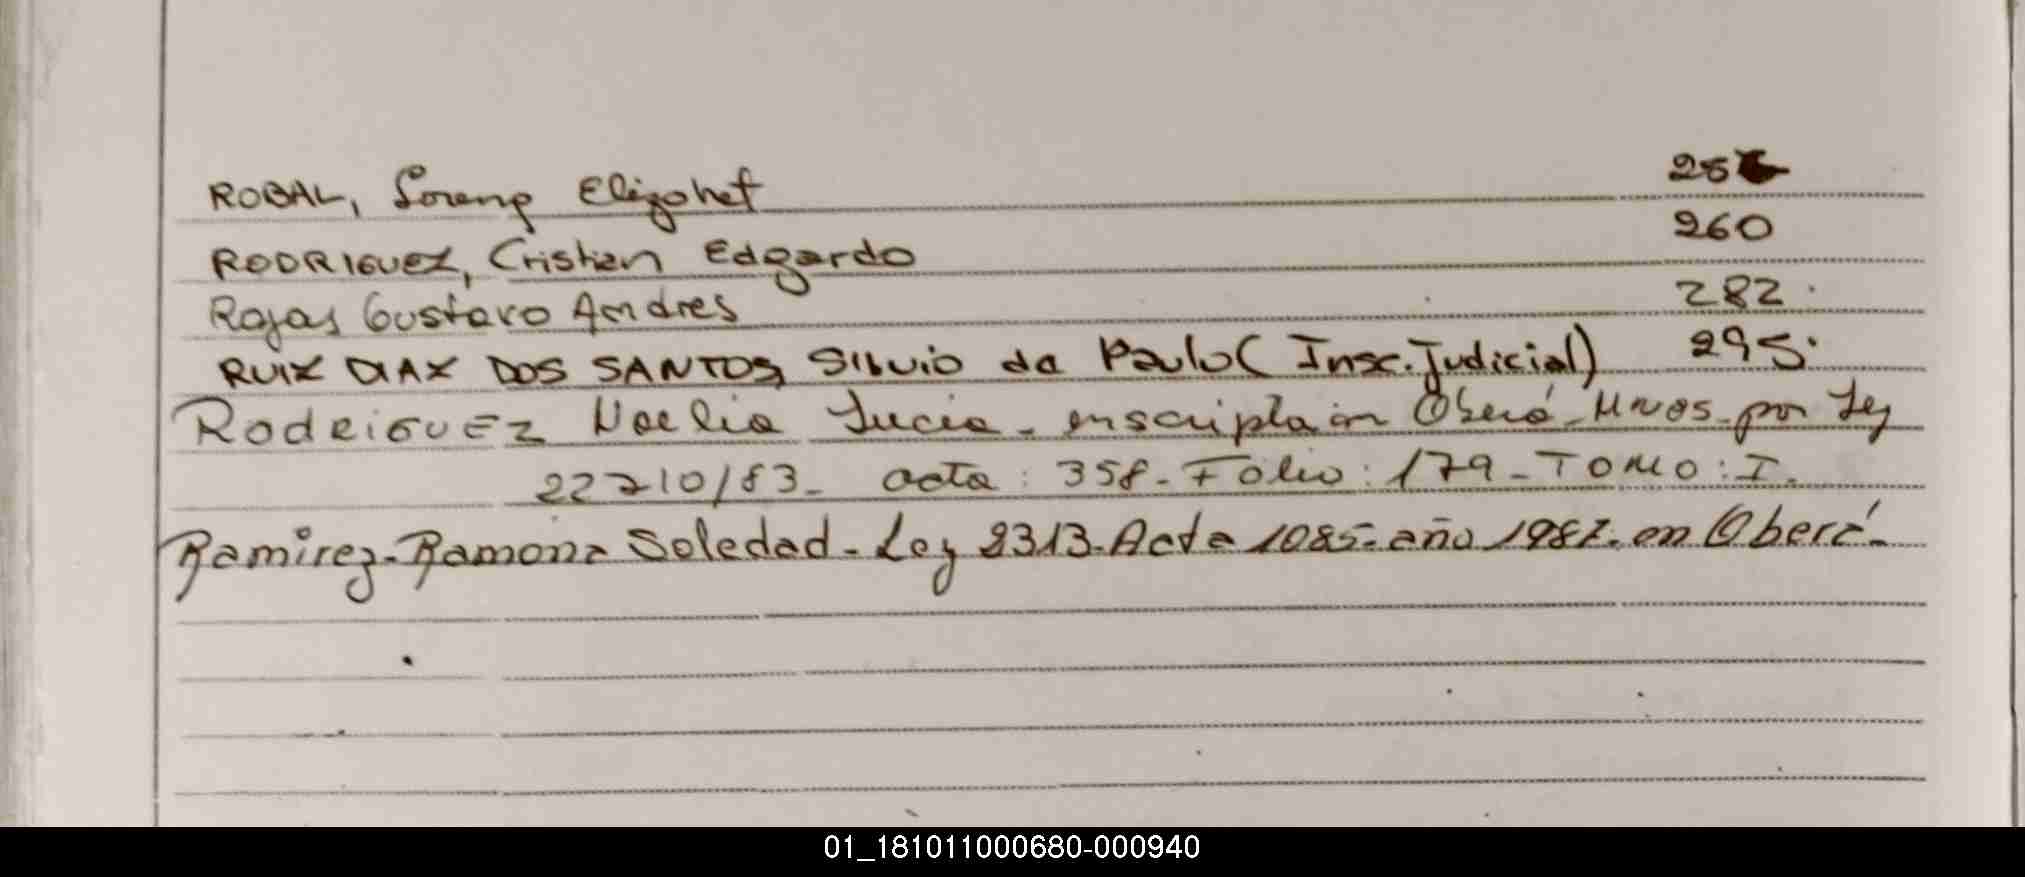 ROBAL, Lorena Elizabet 25
RODRIGUEZ, Cristian Edgardo 260
Rojas Gustavo Andres 282.
RUIZ DIAZ DOS SANTOS, Silvio da Paulo (Insc. Judicial) 295.
RodRiGUEZ Noelia Lucia - inscripta en Oberá - Mnes. por Ley
22710/83 - acta: 358 - Folio: 179 - TOMO: I.
Ramirez - Ramona Soledad - Ley 2313 - Acta 1085 - año 1987. en Oberá -
01_181011000680-000940